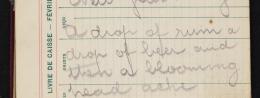 LIVRE DE CAISSE - FÉVRI
A drop of rum a
drop of beer and
then a blooming
head ache